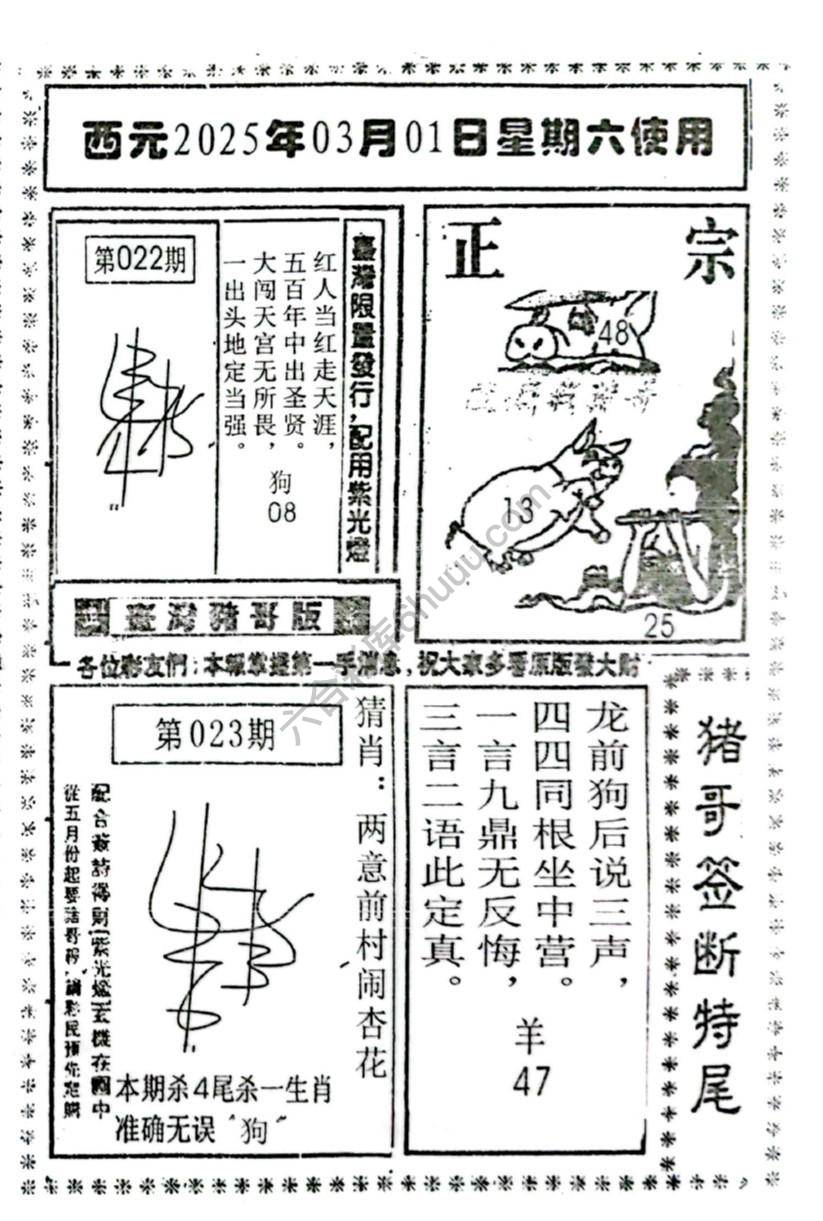 西元2025年03月01日星期六使用
第022期
臺灣限量發行,配用紫光燈
红人当红走天涯,
五百年中出圣贤。
大闯天宫无所畏,
一出头地定当强。
狗
08
正宗
48
13
25
臺灣豬哥版
各位彩友們:本報掌握第一手消息,祝大家多看原版發大財
第023期
猜肖:两意前村闹杏花
配合簽詩得財紫光燈玄機在圖中
本期杀4尾杀一生肖
准确无误“狗”
龙前狗后说三声,
四四同根坐中营。
一言九鼎无反悔,
三言二语此定真。
羊
47
猪哥签断特尾